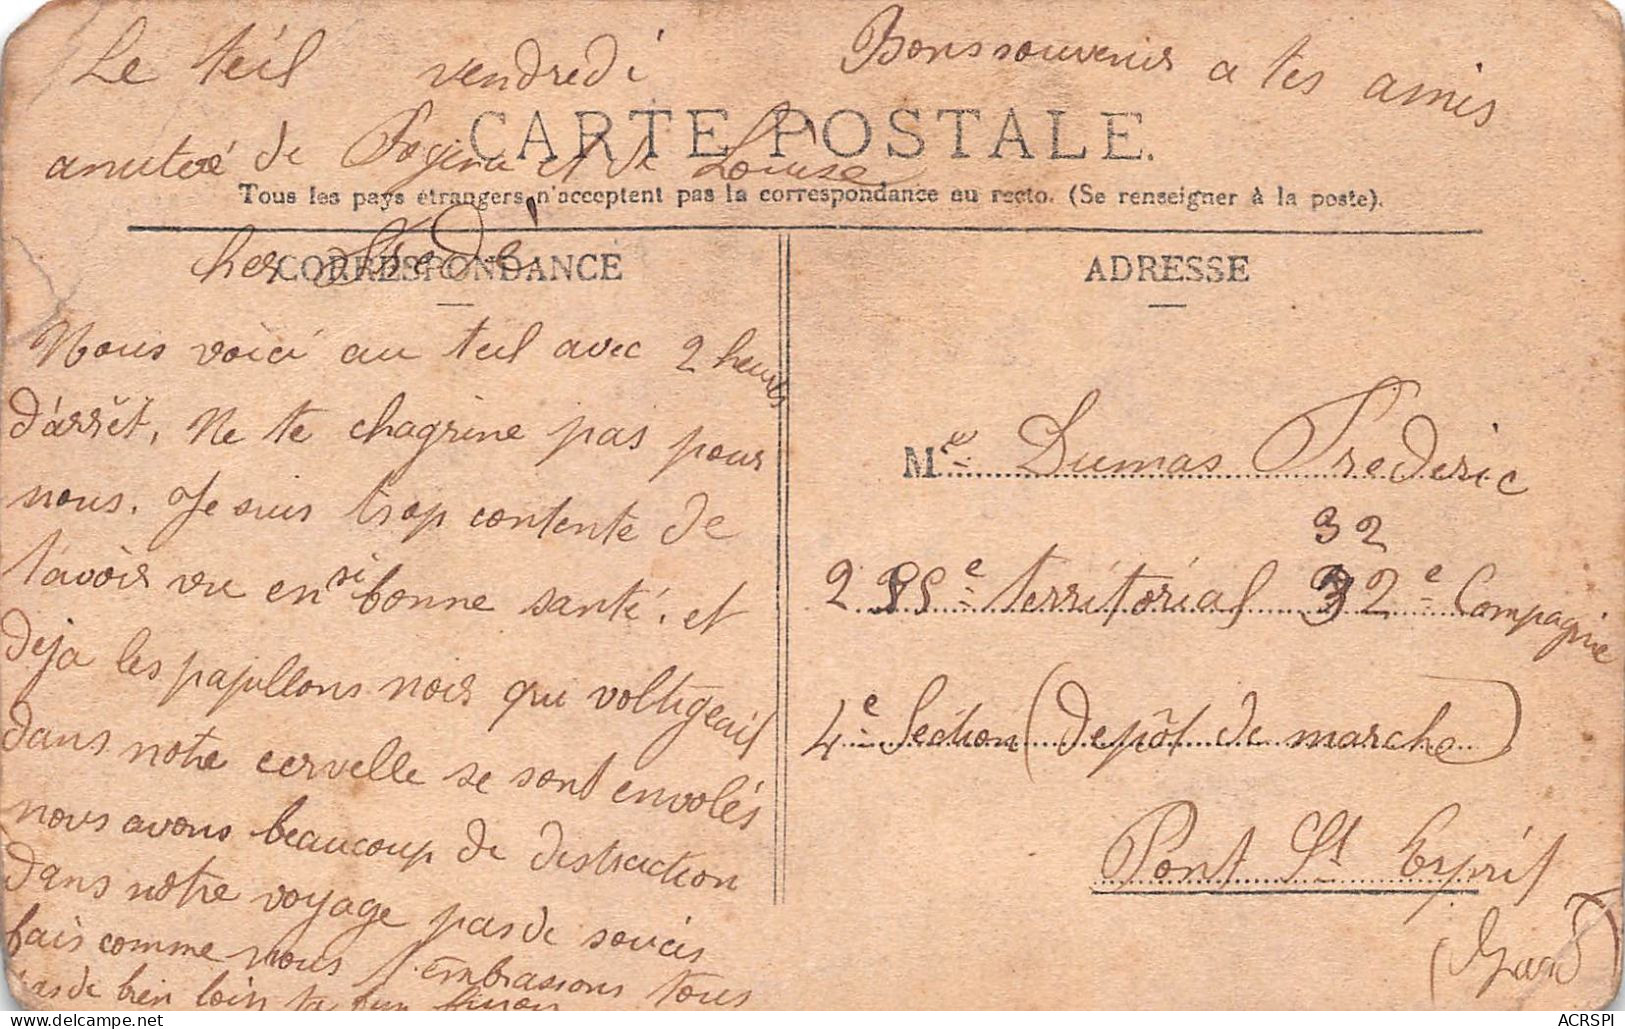 Le teil vendredi
Bons souvenir a tes amis
CARTE POSTALE.
de et de Louise
Tous les pays étrangers n'acceptent pas la correspondance au recto. (Se renseigner à la poste).
cher
CORRESPONDANCE
Nous voici au teil avec 2 heures
d'arrêt, Ne te chagrine pas pour
nous. Je suis trop contente de
t'avoir vu en si bonne santé. et
deja les papillons noir qui voltigeait
dans notre cervelle se sont envolés
nous avons beaucoup de distraction
dans notre voyage pas de soucis
fais comme nous t'embrassons tous
de bien loin ta
ADRESSE
M.e Dumas Frederic
32
e territorial 32e Compagnie
4e Section (depôt de marche)
Pont St Esprit
(Gard)
ACRSPI